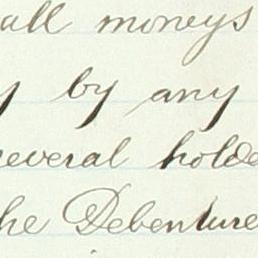 all moneys
y by any
several holde
he Debenture